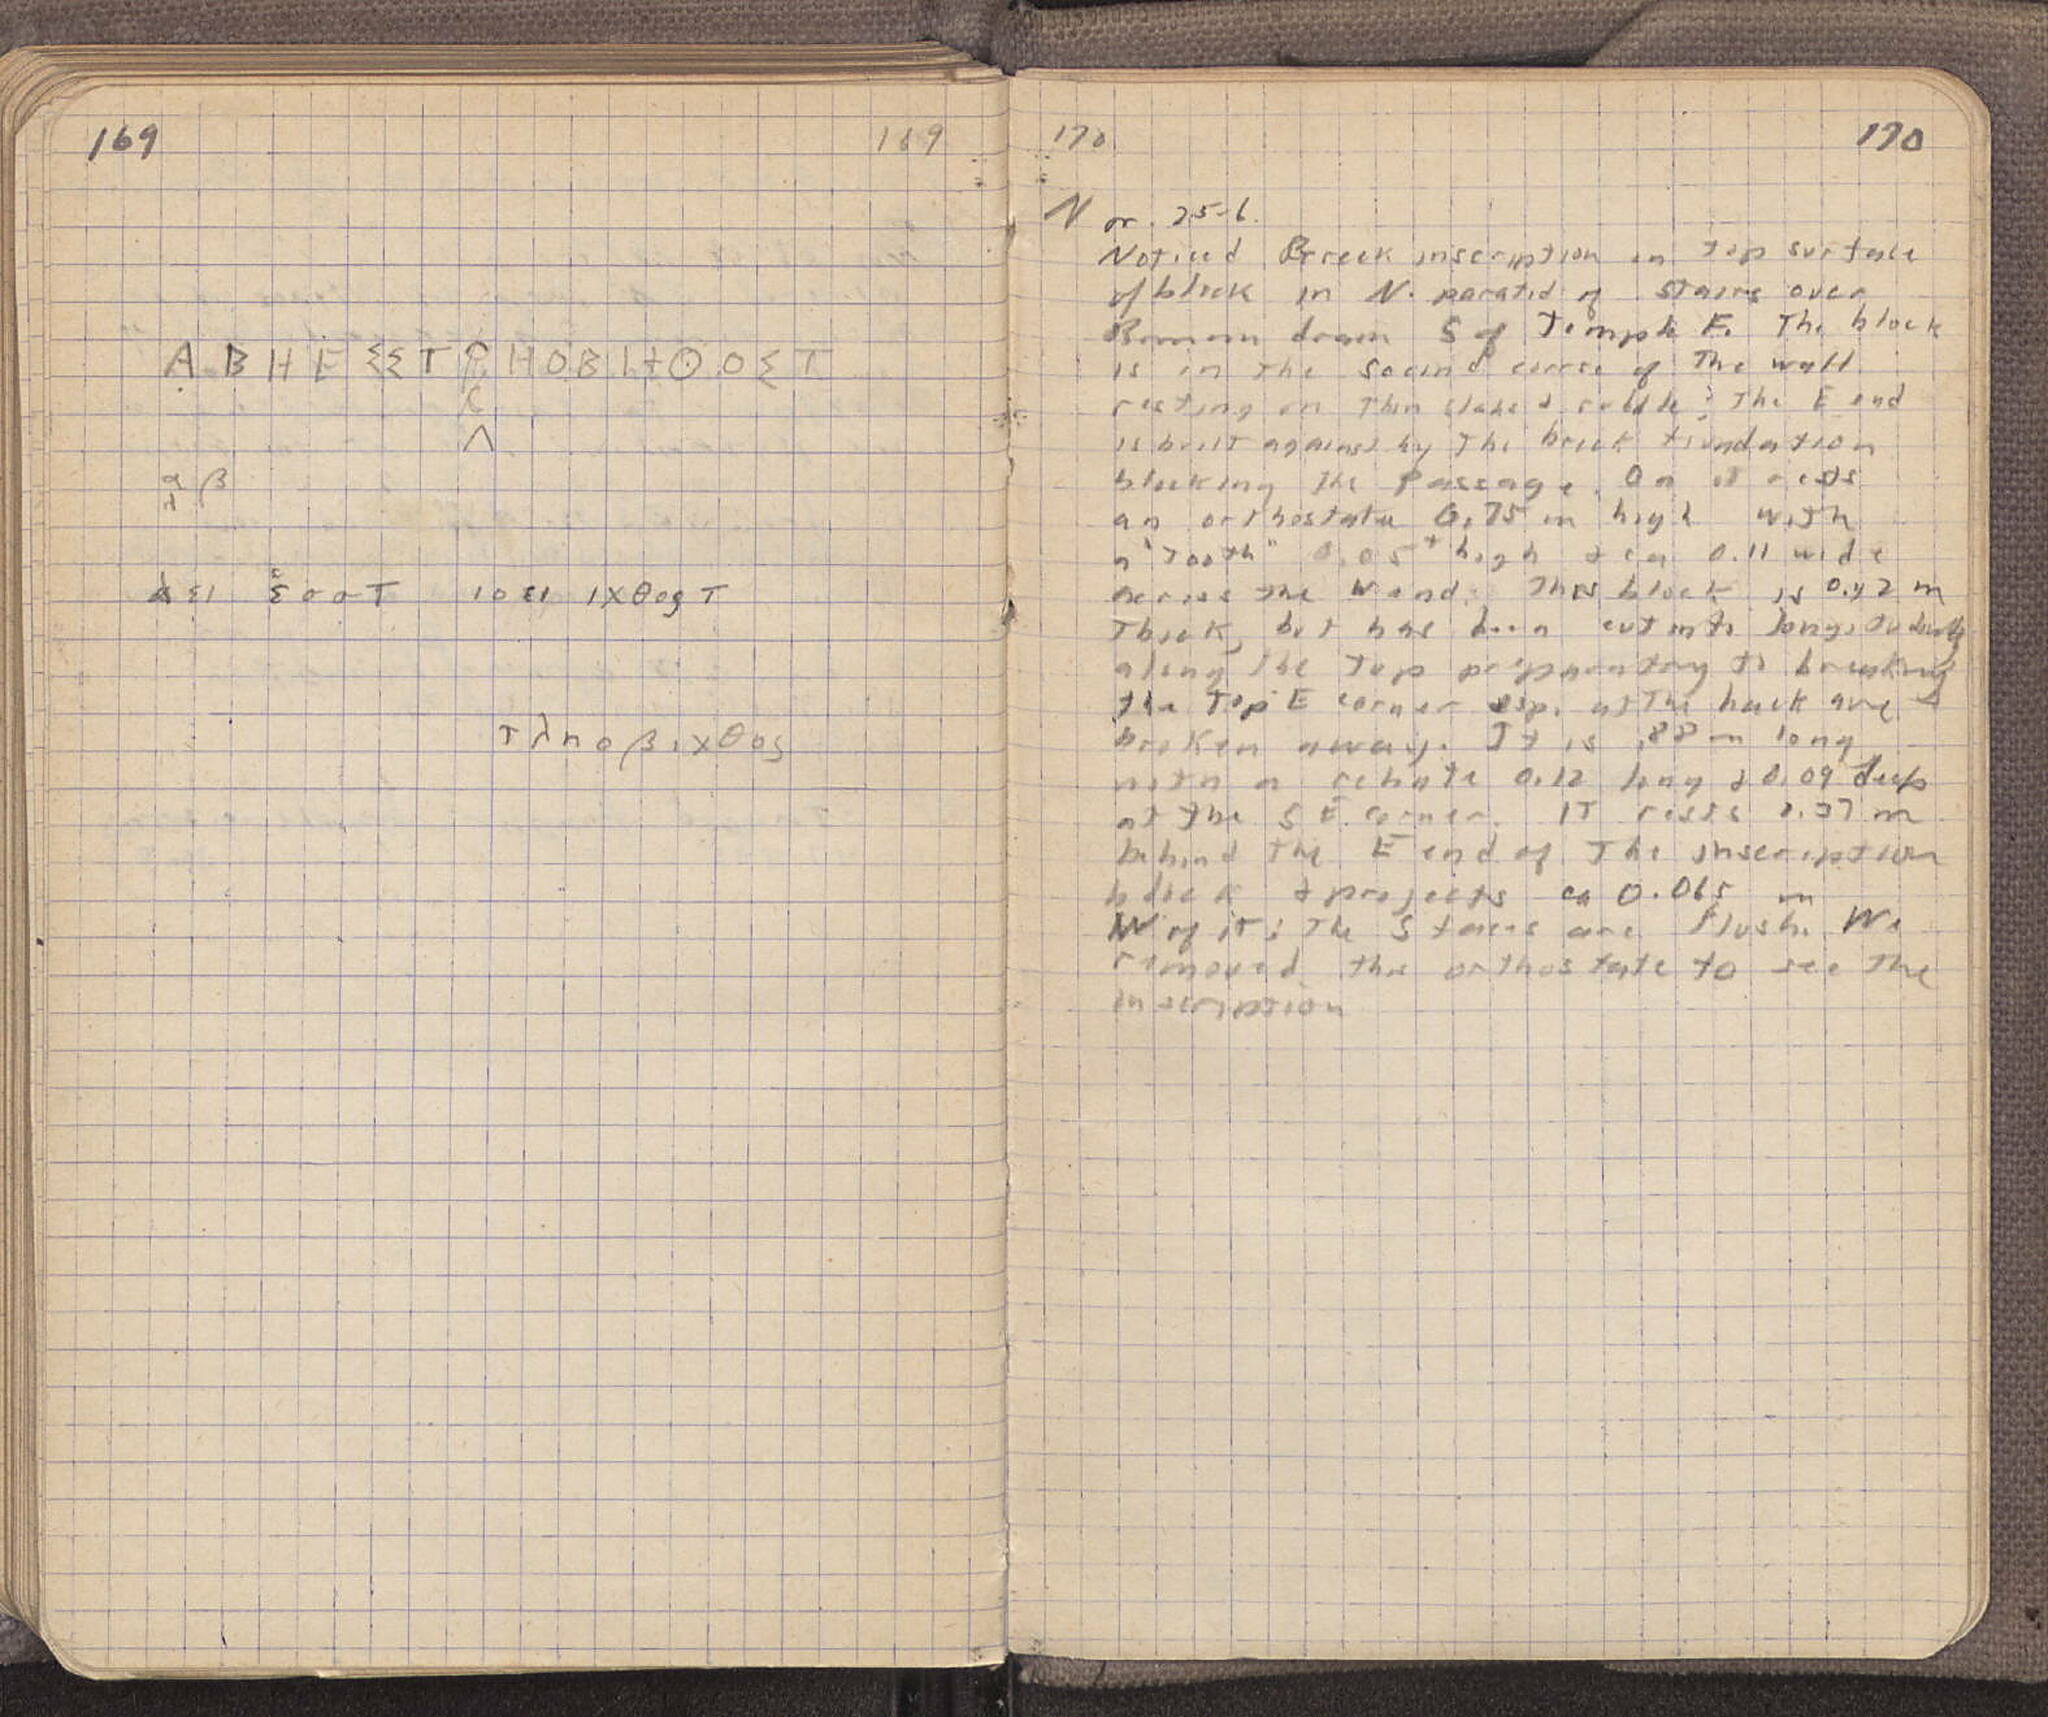 169 169
Α Β Η Ε Σ Σ Τ Ρ Η Ο Β Ι Η Θ Ο Ο Σ Τ
C
Λ
α β
λ
λει εσσΤ ιοει ιχθος τ
τληοβιχθος
170 170
N or. 25-6.
Noticed Greek inscription on top surface
of block in N. parapet of stairs over
Roman drain S of Temple E. The block
is in the second course of the wall
resting on thin slabs & rubble; The E end
is built against by the brick foundation
blocking the passage. On it rests
an orthostate 0.75 m high with
a "tooth" 0.05+ high & ca 0.11 wide
across the W end. This block is 0.42 m
Thick, but has been cut into longitudinally
along the top preparatory to breaking
the Top E corner esp. at the back are
broken away. It is .88 m long
with a rebate 0.12 long & 0.09 deep
at the S E. corner. IT rests 0.37 m
behind the E end of The inscription
block & projects ca 0.065 m
W of it; The S faces are flush. We
removed the orthostate to see the
inscription